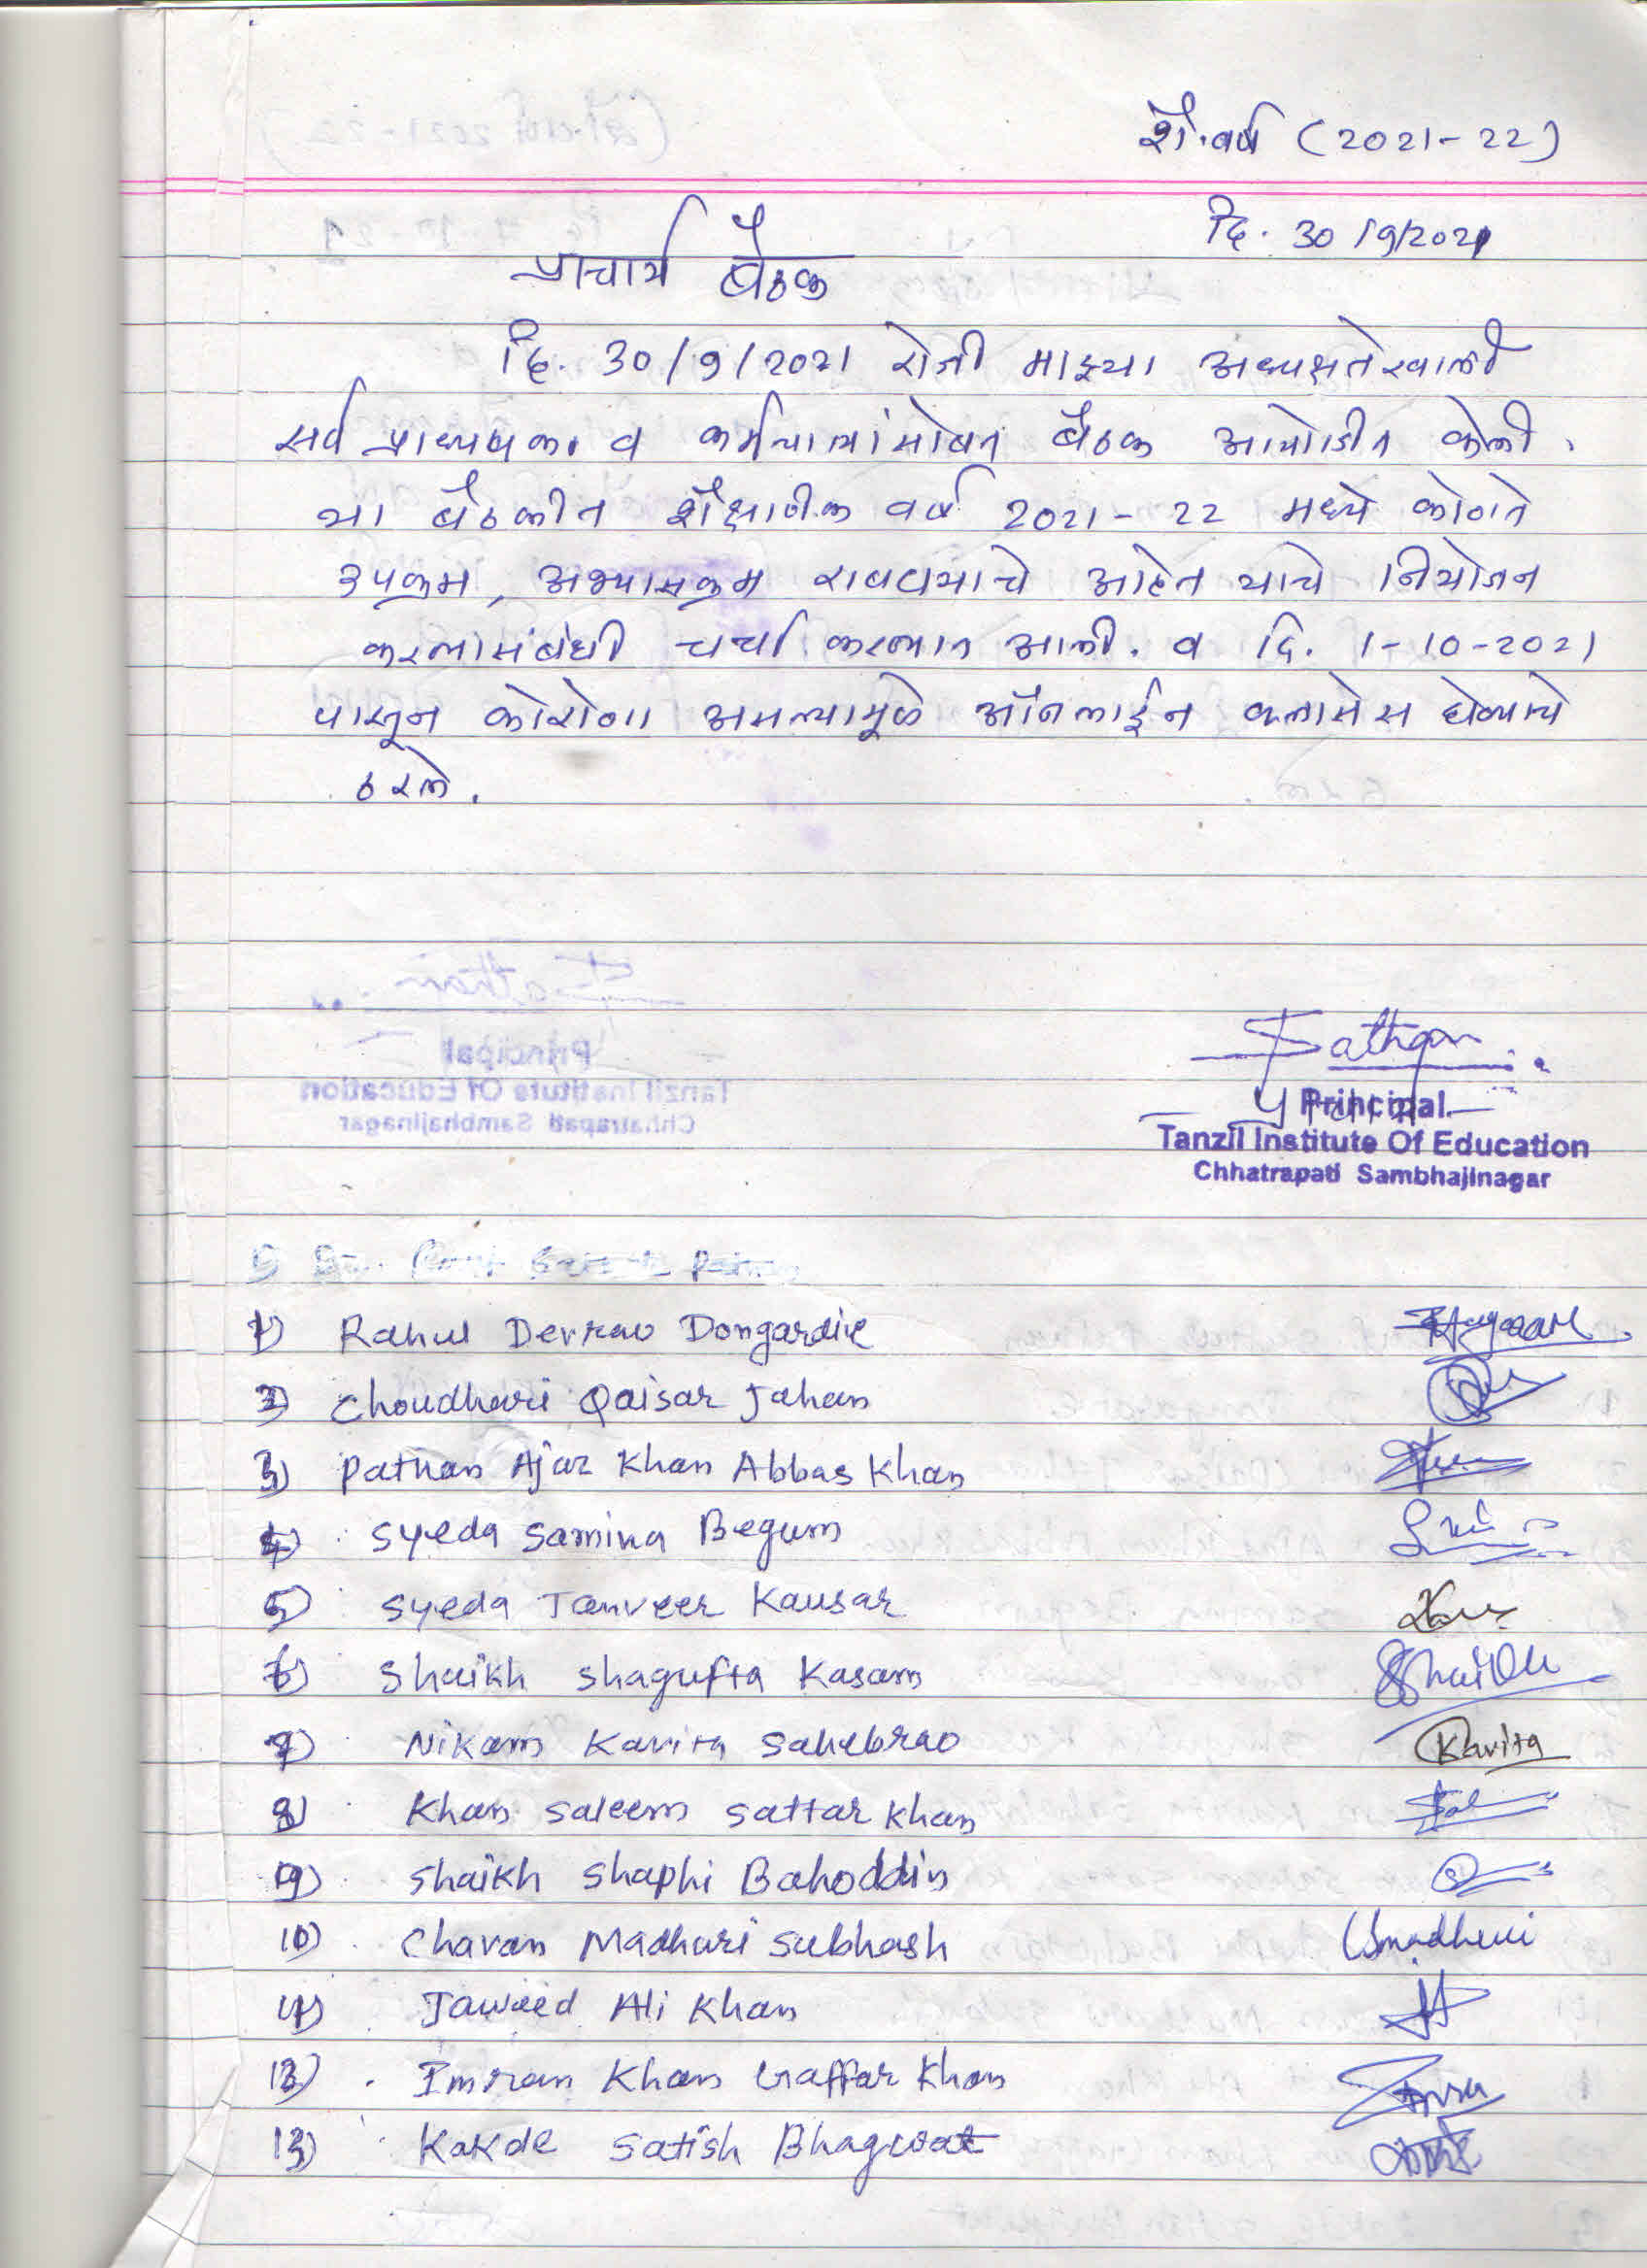 शै.वर्ष (2021-22)
दि. 30/9/2021
प्राचार्य बैठक
दि. 30/9/2021 रोजी माझ्या अध्यक्षतेखाली
सर्व प्राध्यपक व कर्मचाऱ्यांसोबत बैठक आयोजीत केली.
या बैठकीत शैक्षाणीक वर्ष 2021-22 मध्ये कोणते
उपक्रम, अभ्यासक्रम राबवायाचे आहेत याचे नियोजन
करण्यासंबंधी चर्चा करण्यात आली. व दि. 1-10-2021
पासून कोरोना असल्यामूळे ऑनलाईन क्लासेस घेण्याचे
ठरले.
Principal
Tanzil Institute Of Education
Chhatrapati Sambhajinagar
1) Rahul Devrao Dongardive
2) Choudhari Qaisar Jahan
3) Pathan Ajaz Khan Abbas Khan
4) Syeda Samina Begum
5) Syeda Tanveer Kausar
6) Shaikh Shagufta Kasam Shaikh
7) Nikam Kavita Sahebrao Kavita
8) Khan Saleem Sattar Khan
9) Shaikh Shaphi Bahoddin
10) Chavan Madhuri Subhash
11) Jaweed Ali Khan
12) Imran Khan Gaffar Khan
13) Kakde Satish Bhagwat